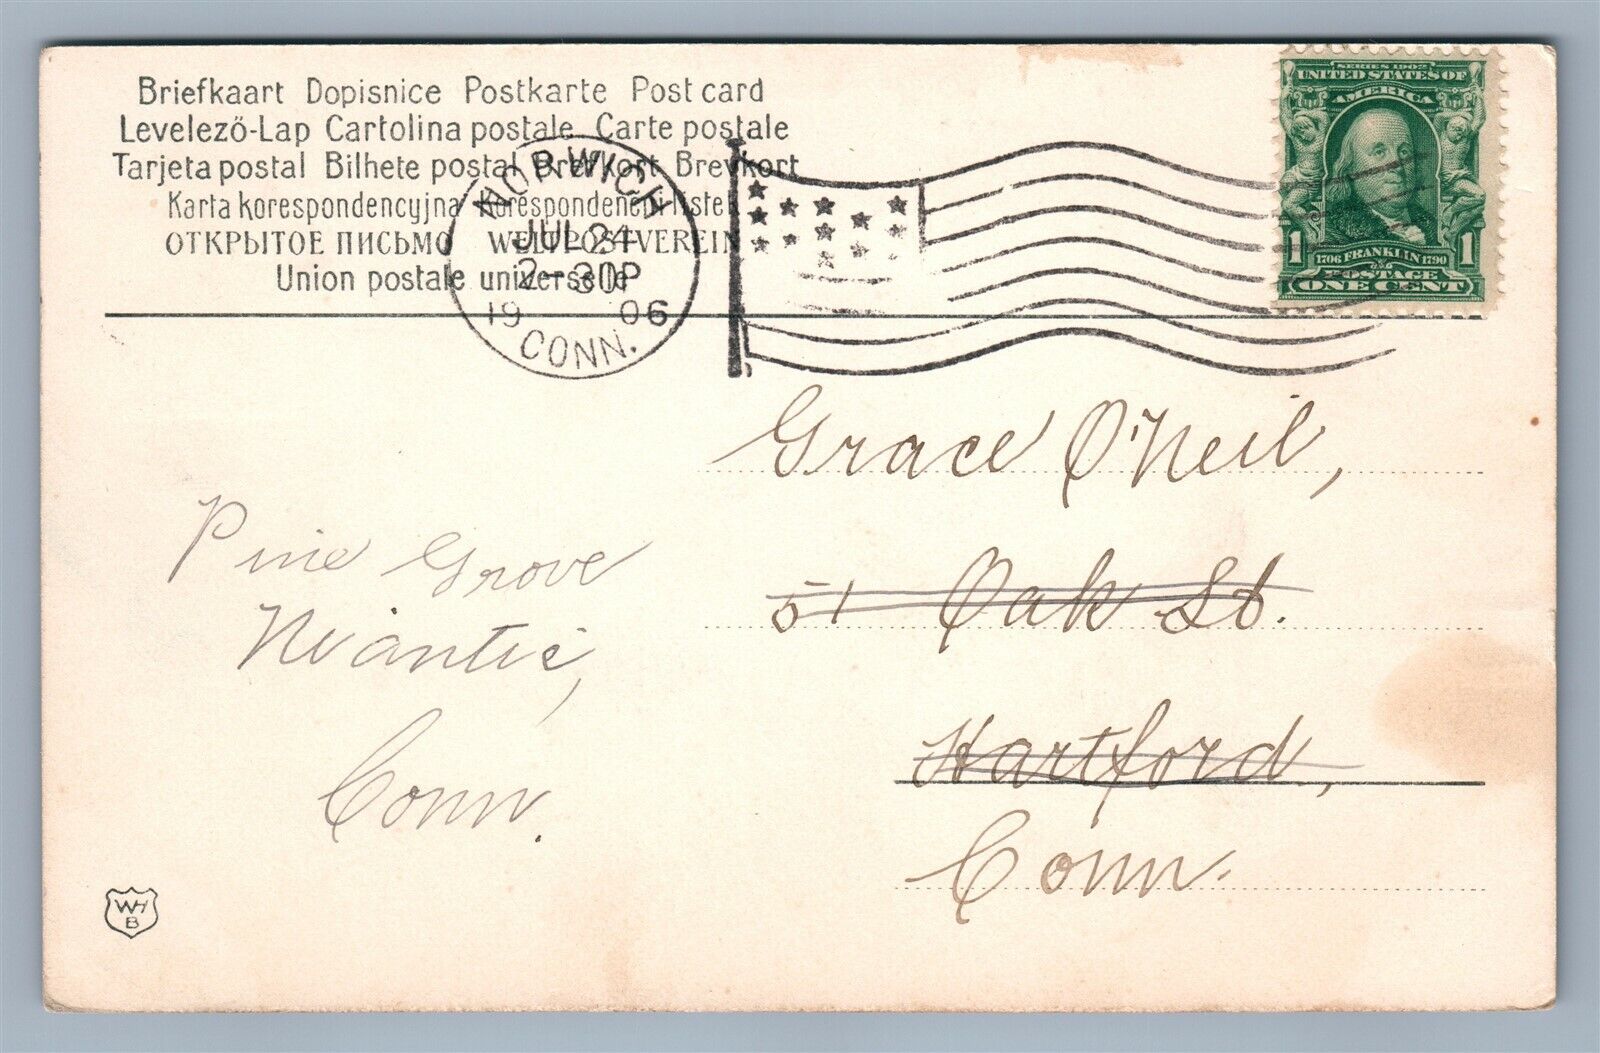 Briefkaart Dopisnice Postkarte Post card
Levelező-Lap Cartolina postale Carte postale
Tarjeta postal Bilhete postal Brefkort Brevkort
Karta korespondencyjna Korespondenční listek
ОТКРЫТОЕ ПИСЬМО WELTPOSTVEREIN
Union postale universelle
NORWICH
JUL 24
2-30P
1906
CONN.
SERIES 1902
UNITED STATES OF
AMERICA
1 1706 FRANKLIN 1790 1
POSTAGE
ONE CENT
Grace O'Neil,
51 Oak St.
Hartford,
Conn.
Pine Grove
Niantic,
Conn.
WH
B